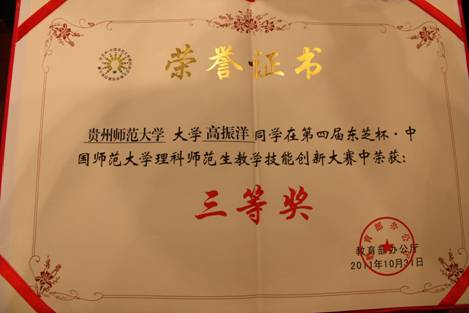 荣誉证书
贵州师范大学 大学 高振洋 同学在第四届东芝杯·中
国师范大学理科师范生教学技能创新大赛中荣获：
三等奖
教育部办公厅
2011年10月31日